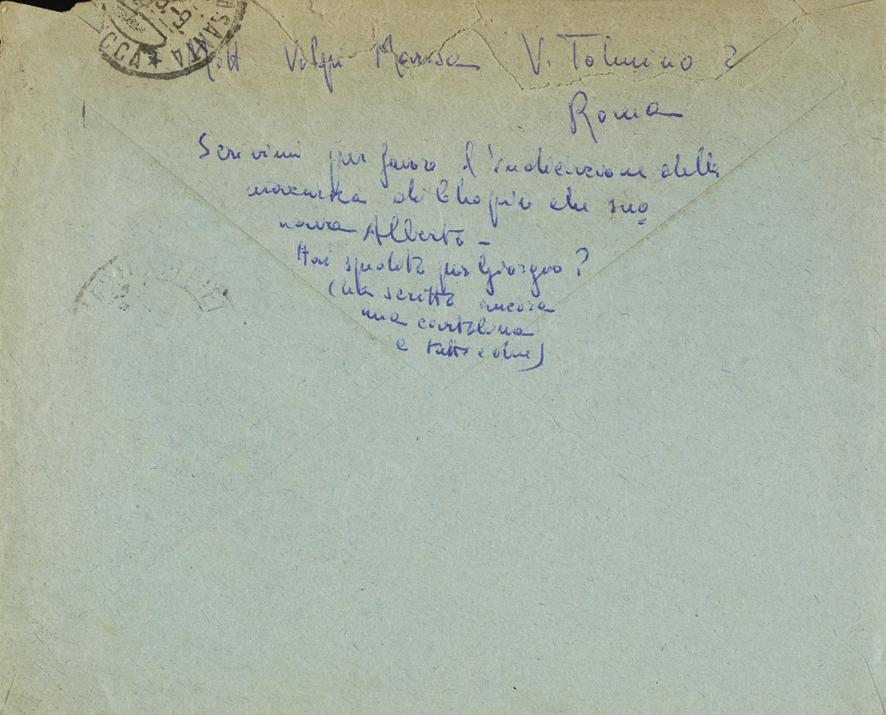 CCA ★
Mitt Volpi Marisa V. Tolmino 2
Roma
Scrivimi per favore l'indicazione della
mazurka di Chopin che suo
nava Alberto –
Hai spedito per Giorgio?
(ha scritto ancora
una cartolina
e tutto e due)